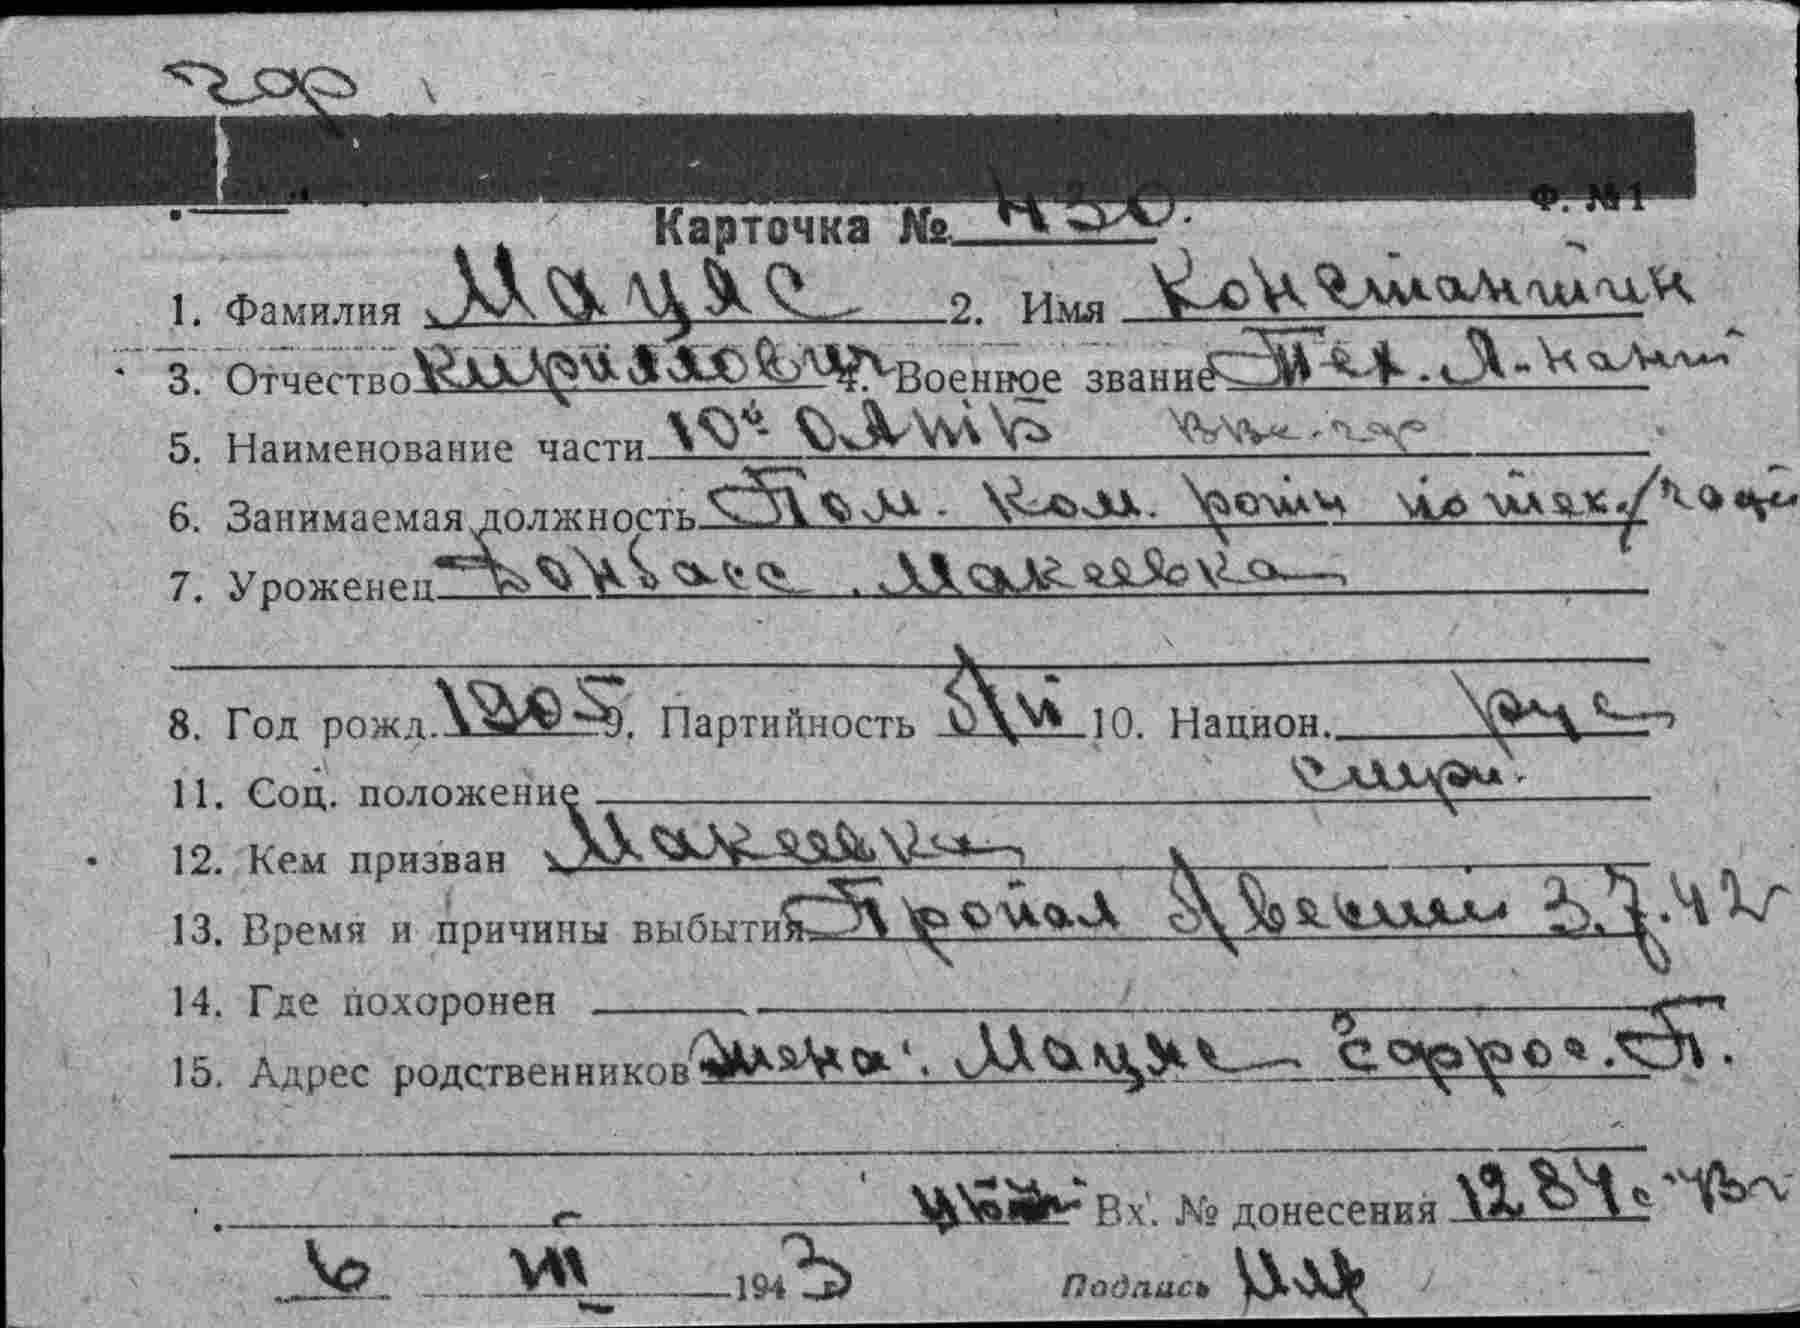 Ф. №1
Карточка № 430.
1. Фамилия Мацяс 2. Имя Константин
3. Отчество Кириллович 4. Военное звание Тех. л-нант
5. Наименование части 10й
6. Занимаемая должность Пом. Ком. роты по тех. /части
7. Уроженец Донбасс, Макеевка
8. Год рожд. 1905 9. Партийность 10. Национ. рус
11. Соц. положение служ.
12. Кем призван Макеевка
13. Время и причины выбытия Пропал 3.7.42г
14. Где похоронен
15. Адрес родственников Жена: Мацяс
Вх. № донесения 1284с 43г
6 III 1943 Подпись